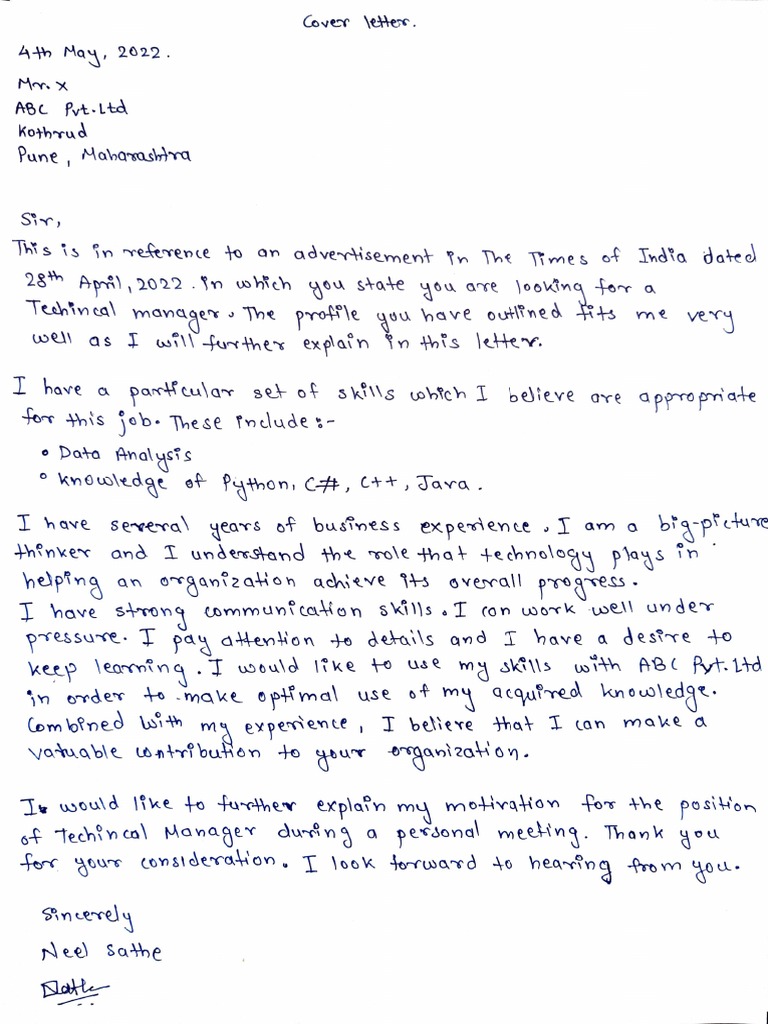 Cover letter.
4th May, 2022.
Mr. X
ABC Pvt. Ltd
Kothrud
Pune, Maharashtra
Sir,
This is in reference to an advertisement in The Times of India dated
28th April, 2022. in which you state you are looking for a
Techincal manager. The profile you have outlined fits me very
well as I will further explain in this letter.
I have a particular set of skills which I believe are appropriate
for this job. These include:-
• Data Analysis
• Knowledge of Python, C#, C++, Java.
I have several years of business experience. I am a big-picture
thinker and I understand the role that technology plays in
helping an organization achieve its overall progress.
I have strong communication skills. I can work well under
pressure. I pay attention to details and I have a desire to
keep learning. I would like to use my skills with ABC Pvt. Ltd
in order to make optimal use of my acquired knowledge.
Combined with my experience, I believe that I can make a
valuable contribution to your organization.
I would like to further explain my motivation for the position
of Techincal Manager during a personal meeting. Thank you
for your consideration. I look forward to hearing from you.
Sincerely
Neel Sathe